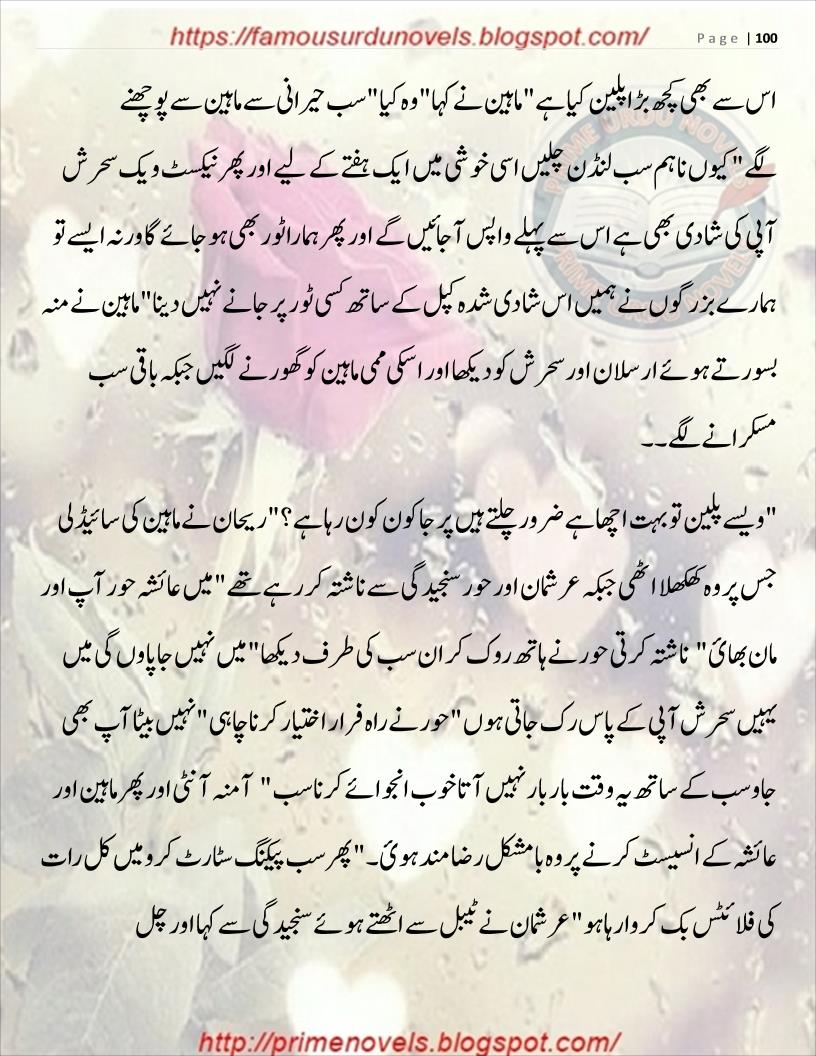 https://famousurdunovels.blogspot.com/
Page | 100
اس سے بھی کچھ بڑا پلین کیا ہے "ماہین نے کہا "وہ کیا" سب حیرانی سے ماہین سے پوچھنے
لگے "کیوں نا ہم سب لنڈن چلیں اسی خوشی میں ایک ہفتے کے لیے اور پھر نیکسٹ ویک سحرش
آپی کی شادی بھی ہے اس سے پہلے واپس آجائیں گے اور پھر ہمارا ٹور بھی ہو جائے گا ورنہ ایسے تو
ہمارے بزرگوں نے ہمیں اس شادی شدہ کپل کے ساتھ کسی ٹور پر جانے نہیں دینا "ماہین نے منہ
بسورتے ہوئے ارسلان اور سحرش کو دیکھا اور اسکی ممی ماہین کو گھورنے لگیں جبکہ باقی سب
مسکرانے لگے۔۔
"ویسے پلین تو بہت اچھا ہے ضرور چلتے ہیں پر جا کون کون رہا ہے؟" ریحان نے ماہین کی سائیڈ لی
جس پر وہ کھکھلا اٹھی جبکہ عرشمان اور حور سنجیدگی سے ناشتہ کر رہے تھے "میں عائشہ حور آپ اور
مان بھائ" ناشتہ کرتی حور نے ہاتھ روک کر ان سب کی طرف دیکھا "میں نہیں جا پاوں گی میں
یہیں سحرش آپی کے پاس رک جاتی ہوں" حور نے راہ فرار اختیار کرنا چاہی "نہیں بیٹا آپ بھی
جاو سب کے ساتھ یہ وقت بار بار نہیں آتا خوب انجوائے کرنا سب" آمنہ آنٹی اور پھر ماہین اور
عائشہ کے انسیسٹ کرنے پر وہ بامشکل رضامند ہوئ۔ "پھر سب پیکنگ سٹارٹ کرو میں کل رات
کی فلائٹس بک کروا رہا ہو" عرشمان نے ٹیبل سے اٹھتے ہوئے سنجیدگی سے کہا اور چل
http://primenovels.blogspot.com/